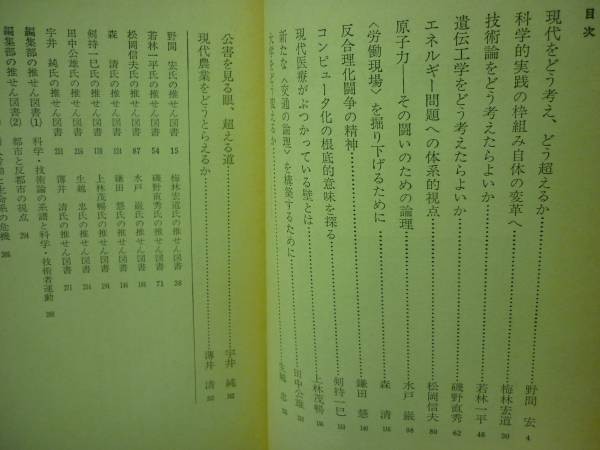 目次
現代をどう考え、どう超えるか 野間 宏 4
科学的実践の枠組み自体の変革へ 梅林宏道 20
技術論をどう考えたらよいか 若林一平 46
遺伝工学をどう考えたらよいか 磯野直秀 62
エネルギー問題への体系的視点 松岡信夫 80
原子力――その闘いのための論理 水戸 巌 98
〈労働現場〉を掘り下げるために 森 清
反合理化闘争の精神 鎌田 慧
コンピュータ化の根底的意味を探る 剣持一巳
現代医療がぶつかっている壁とは 上林茂暢
新たな〈交通の論理〉を構築するために 田中公雄
大学をどう超えるか 生越 忠
公害を見る眼、超える道 宇井 純
現代農業をどうとらえるか 薄井 清
野間 宏氏の推せん図書 15
梅林宏道氏の推せん図書 38
若林一平氏の推せん図書 54
磯野直秀氏の推せん図書 73
松岡信夫氏の推せん図書 87
水戸 巌氏の推せん図書
森 清氏の推せん図書
鎌田 慧氏の推せん図書
剣持一巳氏の推せん図書
上林茂暢氏の推せん図書
田中公雄氏の推せん図書
生越 忠氏の推せん図書
宇井 純氏の推せん図書
薄井 清氏の推せん図書
編集部の推せん図書(1) 科学・技術論の系譜と科学・技術者運動
編集部の推せん図書(2) 都市と反都市の視点
編集部の推せん図書